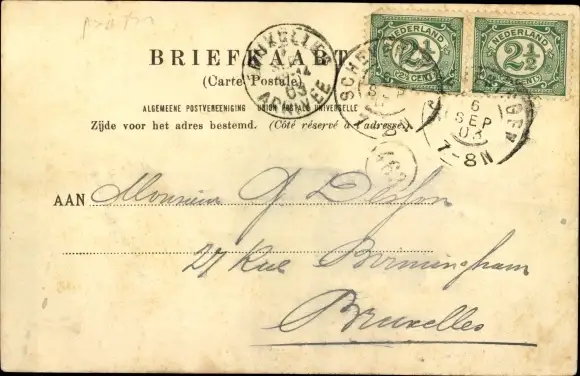 BRIEFKAART
(Carte Postale)
ALGEMEENE POSTVEREENIGING UNION POSTALE UNIVERSELLE
Zijde voor het adres bestemd. (Côté réservé à l'adresse.)
NEDERLAND
2½
(2½ CENT)
NEDERLAND
2½
BRUXELLES
ARRIVEE
03
SEP
7-8N
6
SEP
03
7-8N
AAN Monsieur G.
27 Rue Birmingham
Bruxelles